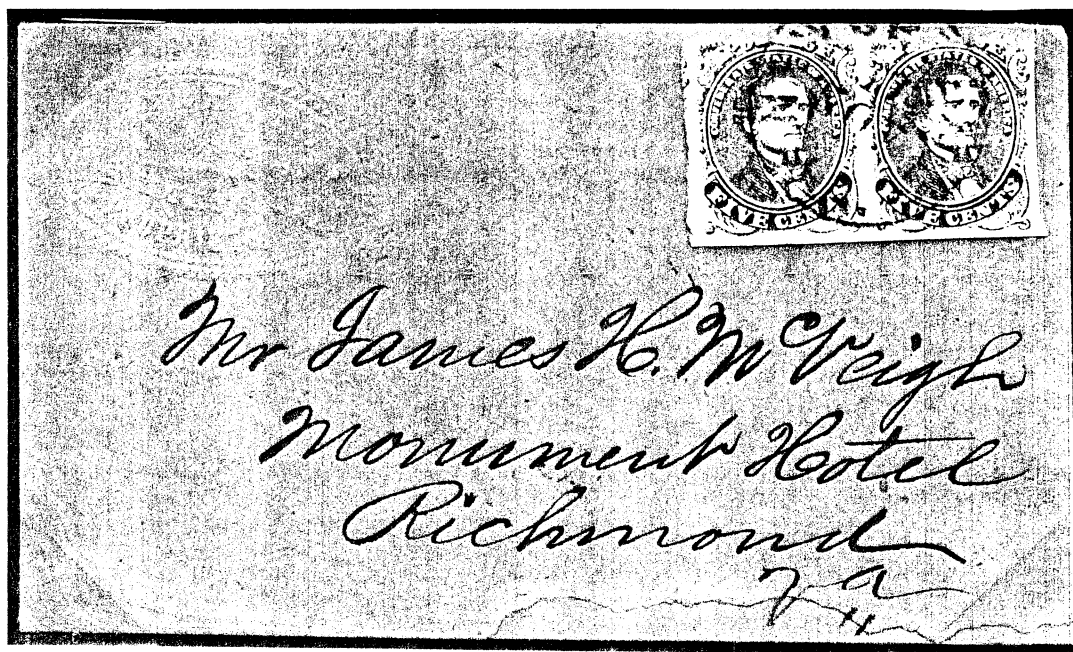 FIVE CENTS FIVE CENTS
Mr James H. McVeigh
Monument Hotel
Richmond
Va